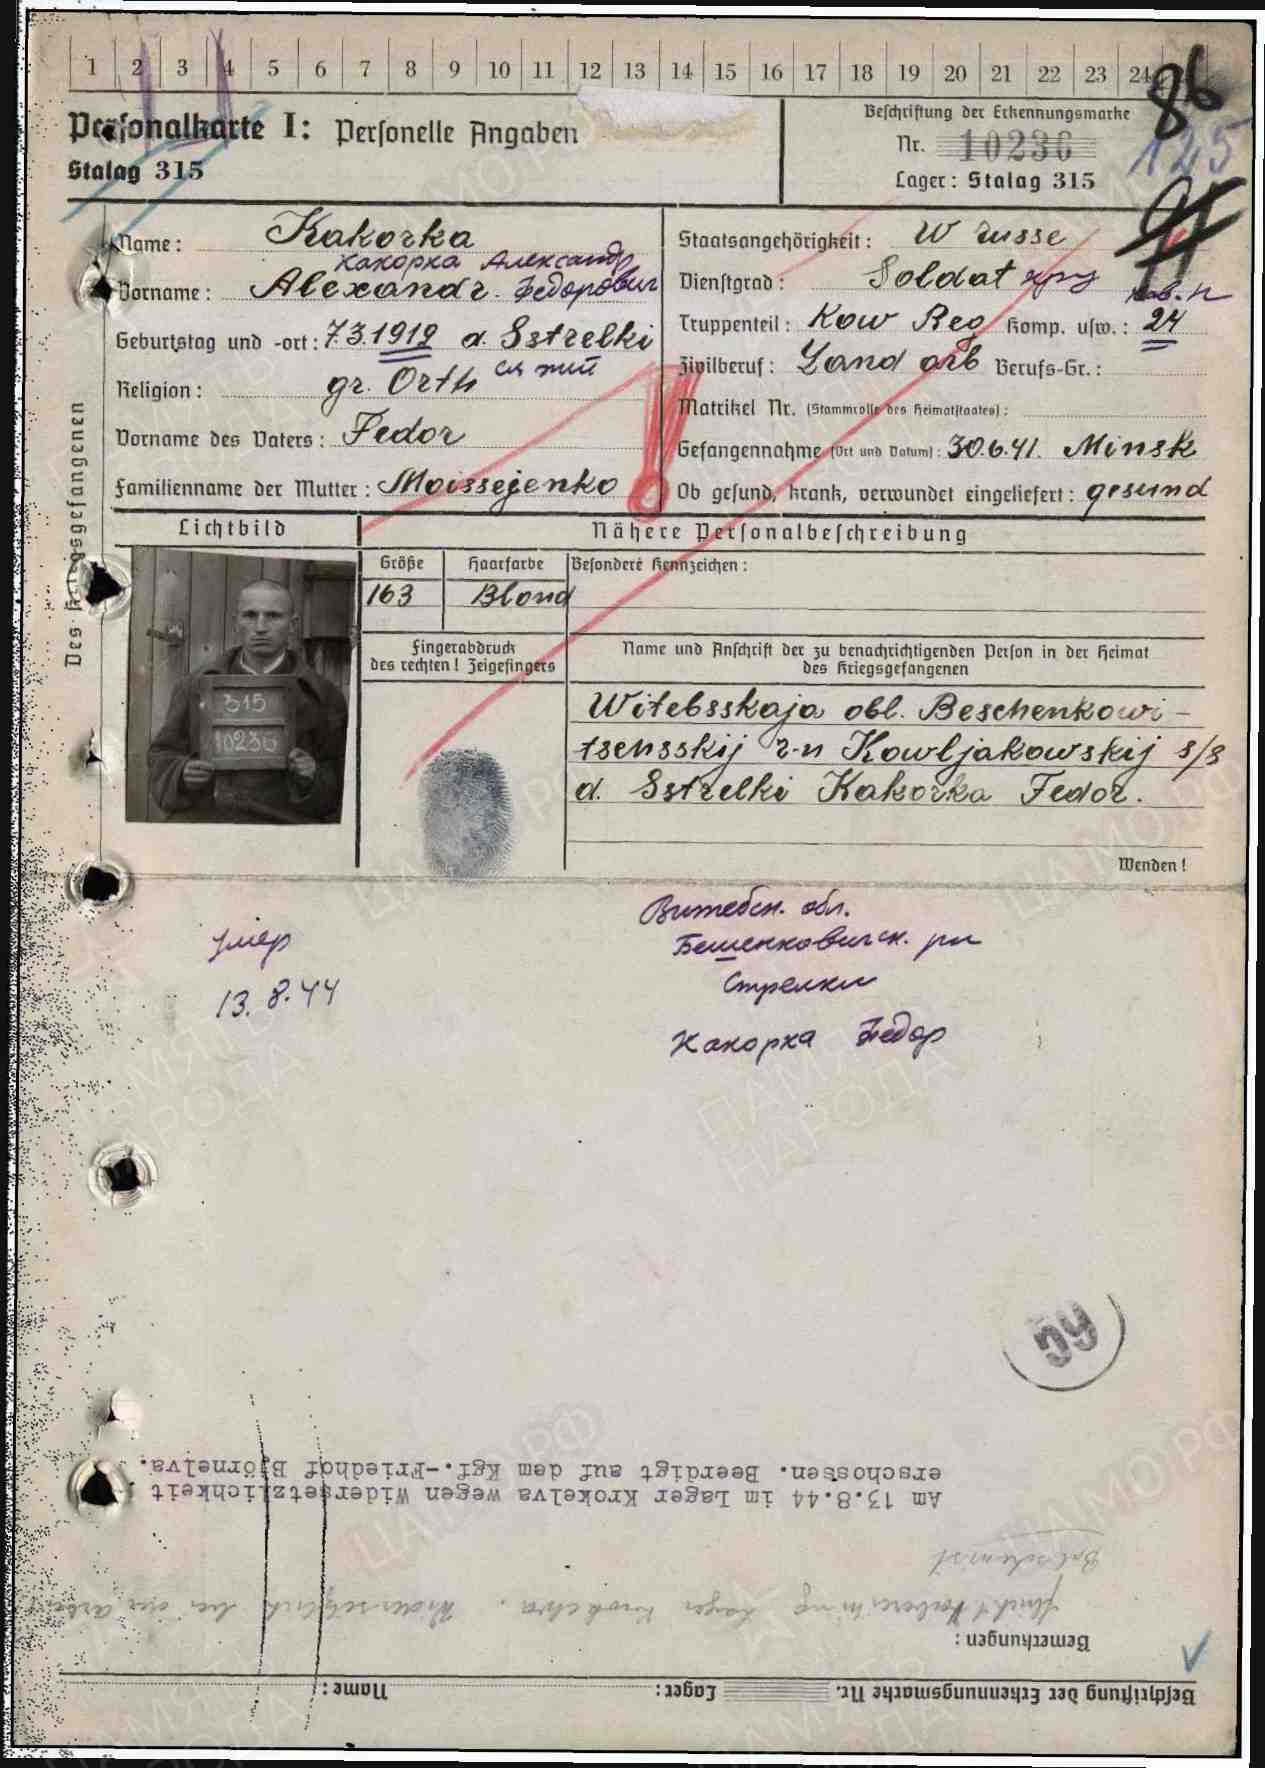 1 2 3 4 5 6 7 8 9 10 11 12 13 14 15 16 17 18 19 20 21 22 23 24
86
125
Personalkarte I: Personelle Angaben
Stalag 315
Beschriftung der Erkennungsmarke
Nr. 10236
Lager: Stalag 315
Des Kriegsgefangenen
Name: Kakorka
Какорка Александр
Vorname: Alexandr. Федорович
Geburtstag und -ort: 7.3.1919 d. Sstrelki
Religion: gr. Orth
Vorname des Vaters: Fedor
Familienname der Mutter: Moissejenko
Staatsangehörigkeit: W russe
Dienstgrad: Soldat
кав. п
Truppenteil: Kow Reg Komp. usw.: 24
Zivilberuf: Land arb Berufs-Gr.:
Matrikel Nr. (Stammrolle des Heimatstaates):
Gefangennahme (Ort und Datum): 30.6.41. Minsk
Ob gesund, krank, verwundet eingeliefert: gesund
Lichtbild
Nähere Personalbeschreibung
Größe Haarfarbe Besondere Kennzeichen:
163 Blond
315
10236
Fingerabdruck
des rechten! Zeigefingers
Name und Anschrift der zu benachrichtigenden Person in der Heimat
des Kriegsgefangenen
Witebsskaja obl. Beschenkowi-
tschsskij r-n Kowljakowskij s/s
d. Sstrelki Kakorka Fedor.
Wenden!
Умер
13.8.44
Витебск. обл.
Бешенковичск. рн
Стрелки
Какорка Федор
59
Beschriftung der Erkennungsmarke Nr. Lager: Name:
Bemerkungen:
Lager Krokelva.
Am 13.8.44 im Lager Krokelva wegen Widersetzlichkeit
erschossen. Beerdigt auf dem Kgf.-Friedhof Björnelva.
ЦАМО.РФ
ПАМЯТЬ
НАРОДА